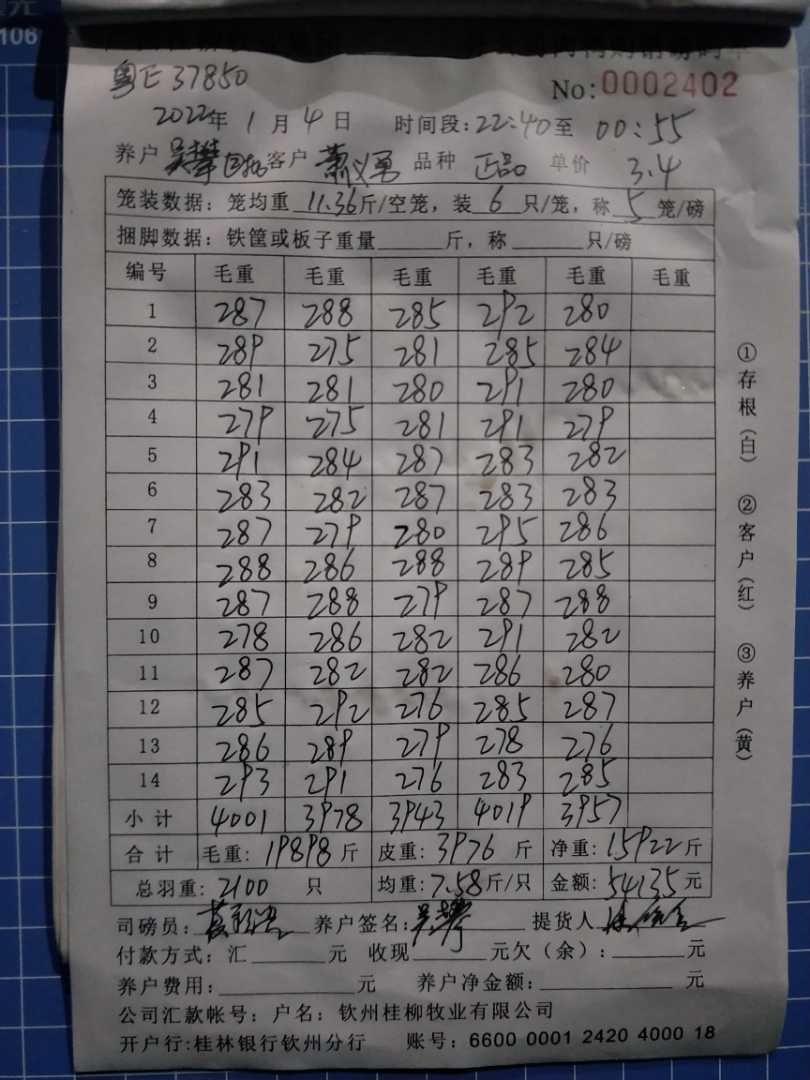 106
粤E37850
No:0002402
2022年1月4日 时间段:22:40至00:55
养户 吴攀 客户 萧义勇 品种 正品 单价 3.4
笼装数据：笼均重 11.36 斤/空笼，装 6 只/笼，称 5 笼/磅
捆脚数据：铁筐或板子重量____斤，称____只/磅
编号 毛重 毛重 毛重 毛重 毛重 毛重
1 287 288 285 292 280
2 289 275 281 285 284
3 281 281 280 291 280
4 279 275 281 291 279
5 291 284 287 283 282
6 283 282 287 283 283
7 287 279 280 295 286
8 288 286 288 289 285
9 287 288 279 287 288
10 278 286 282 291 282
11 287 282 282 286 280
12 285 292 276 285 287
13 286 289 279 278 276
14 293 291 276 283 285
小计 4001 3978 3943 4019 3957
合计 毛重: 19898 斤 皮重: 3976 斤 净重: 15922 斤
总羽重: 2100 只 均重: 7.58 斤/只 金额: 54135 元
司磅员: 养户签名: 吴攀 提货人
付款方式: 汇____元 收现____元欠（余）:____元
养户费用:____元 养户净金额:____元
公司汇款帐号；户名：钦州桂柳牧业有限公司
开户行:桂林银行钦州分行 账号: 6600 0001 2420 4000 18
①存根（白） ②客户（红） ③养户（黄）